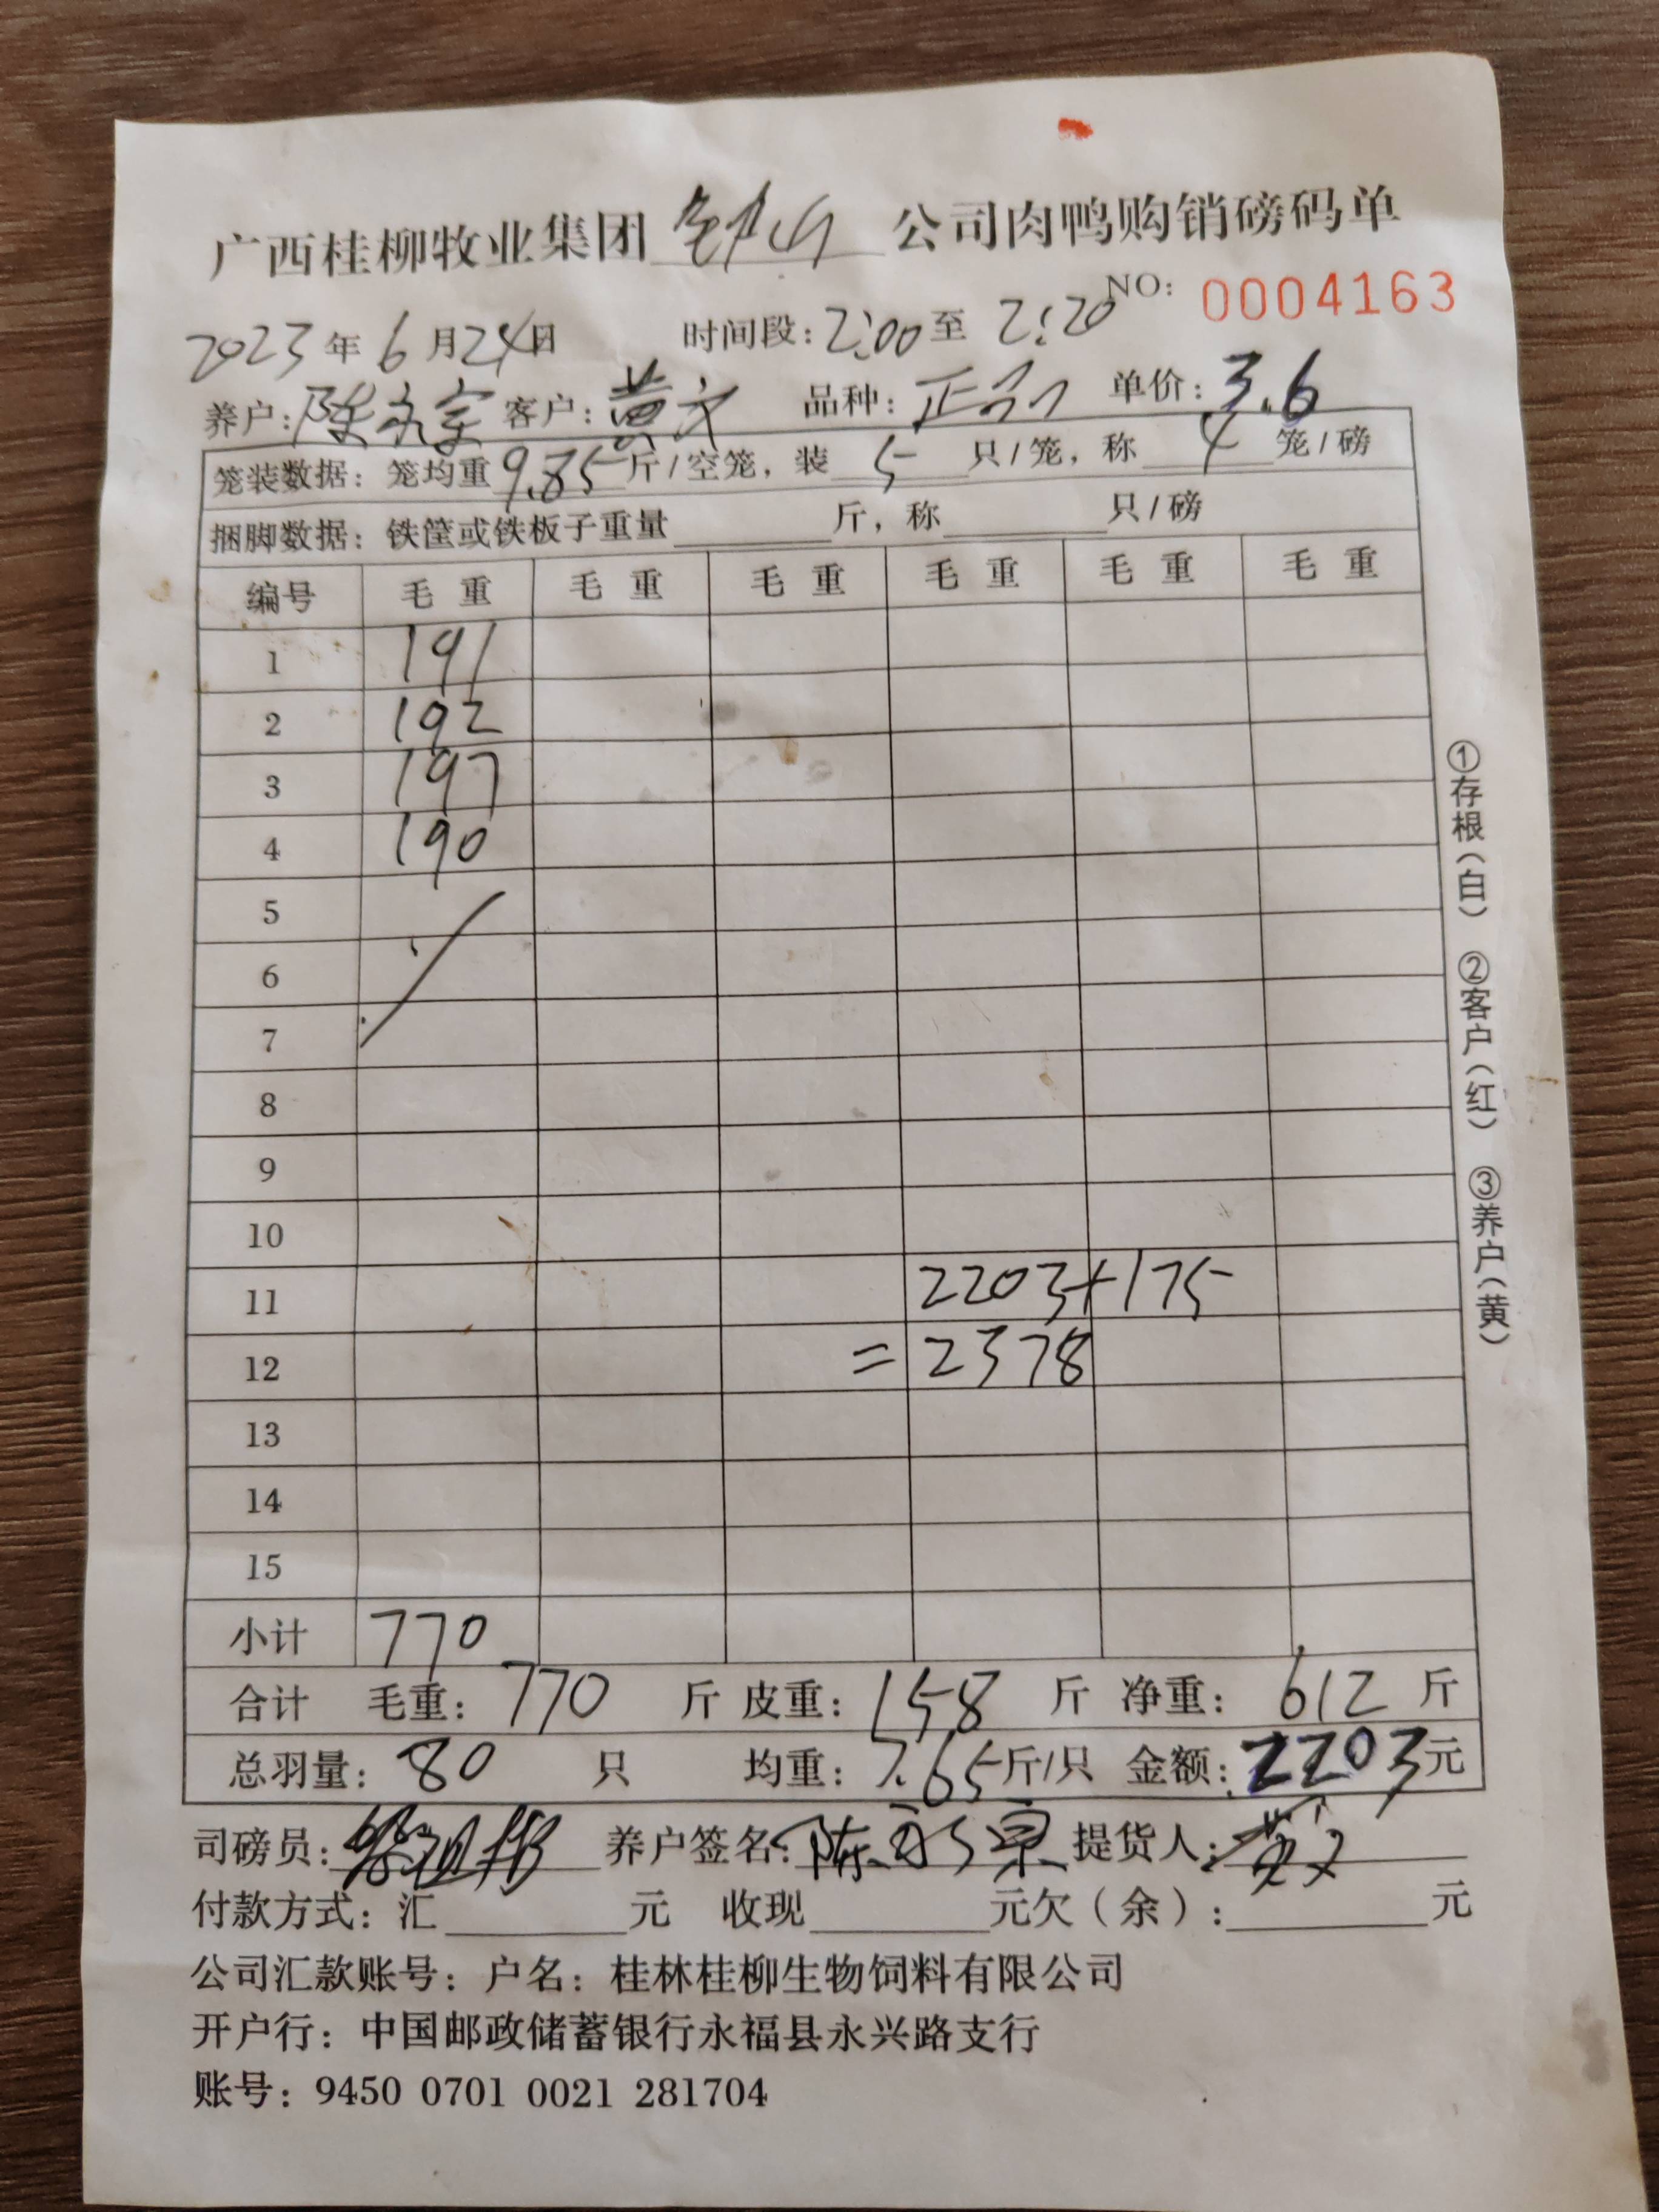 广西桂柳牧业集团 钟山 公司肉鸭购销磅码单
NO: 0004163
2023年6月24日 时间段:2:00至2:20
养户:陈永宗 客户:黄文 品种:正品 单价:3.6
笼装数据:笼均重9.85斤/空笼,装5只/笼,称4笼/磅
捆脚数据:铁筐或铁板子重量 斤,称 只/磅
编号 毛重 毛重 毛重 毛重 毛重 毛重
1 191
2 192
3 197
4 190
5
6
7
8
9
10
11 2203+175
12 =2378
13
14
15
小计 770
合计 毛重:770 斤 皮重:158 斤 净重:612 斤
总羽量:80 只 均重:7.65斤/只 金额:2203元
司磅员: 养户签名:陈永宗 提货人:黄文
付款方式:汇 元 收现 元欠(余): 元
公司汇款账号:户名:桂林桂柳生物饲料有限公司
开户行:中国邮政储蓄银行永福县永兴路支行
账号:9450 0701 0021 281704
①存根(白) ②客户(红) ③养户(黄)